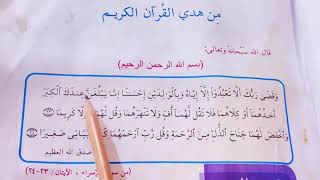 مِن هدي القُرآن الكريم
قال الله سبحانه وتعالى:
(بسم الله الرحمن الرحيم)
وَقَضَىٰ رَبُّكَ أَلَّا تَعْبُدُوٓا۟ إِلَّآ إِيَّاهُ وَبِٱلْوَٰلِدَيْنِ إِحْسَٰنًا إِمَّا يَبْلُغَنَّ عِندَكَ ٱلْكِبَرَ
أَحَدُهُمَآ أَوْ كِلَاهُمَا فَلَا تَقُل لَّهُمَآ أُفٍّ وَلَا تَنْهَرْهُمَا وَقُل لَّهُمَا قَوْلًا كَرِيمًا
وَٱخْفِضْ لَهُمَا جَنَاحَ ٱلذُّلِّ مِنَ ٱلرَّحْمَةِ وَقُل رَّبِّ ٱرْحَمْهُمَا كَمَا رَبَّيَانِى صَغِيرًا
صدق الله العظيم
من سورة الإسراء، الآيتان / ٢٣-٢٤